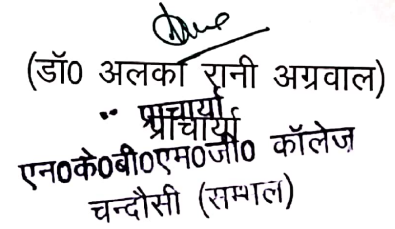 (डॉ0 अलका रानी अग्रवाल)
प्राचार्या
प्राचार्या
एन0के0बी0एम0जी0 कॉलेज
चन्दौसी (सम्भल)